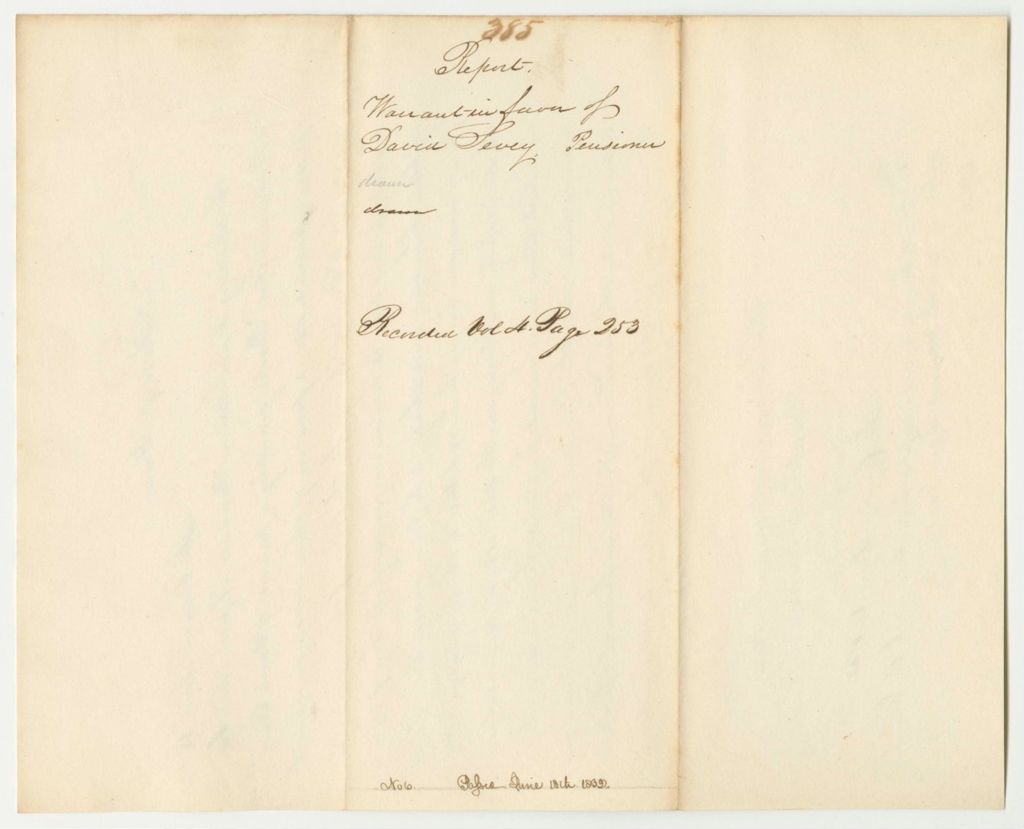 385
Report.
Warrant in favor of
David Sevey, Pensioner
drawn
drawn
Recorded Vol 4. Page 253
No 6. June 18th 1832.